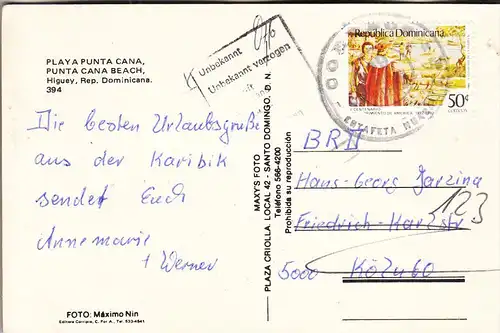 PLAYA PUNTA CANA,
PUNTA CANA BEACH,
Higuey, Rep. Dominicana.
394
Unbekannt
Unbekannt verzogen
República Dominicana
50¢
ESTAFETA
Die besten Urlaubsgrüße
aus der Karibik
sendet Euch
Annemarie
+ Werner
FOTO: Máximo Nin
MAXY'S FOTO
PLAZA CRIOLLA, LOCAL 42 - SANTO DOMINGO, D. N.
Teléfono 566-4200
Prohibida su reproducción
BRD
Hans-Georg Jarzina
Friedrich-Karl-Str
123
5000 Köln 60